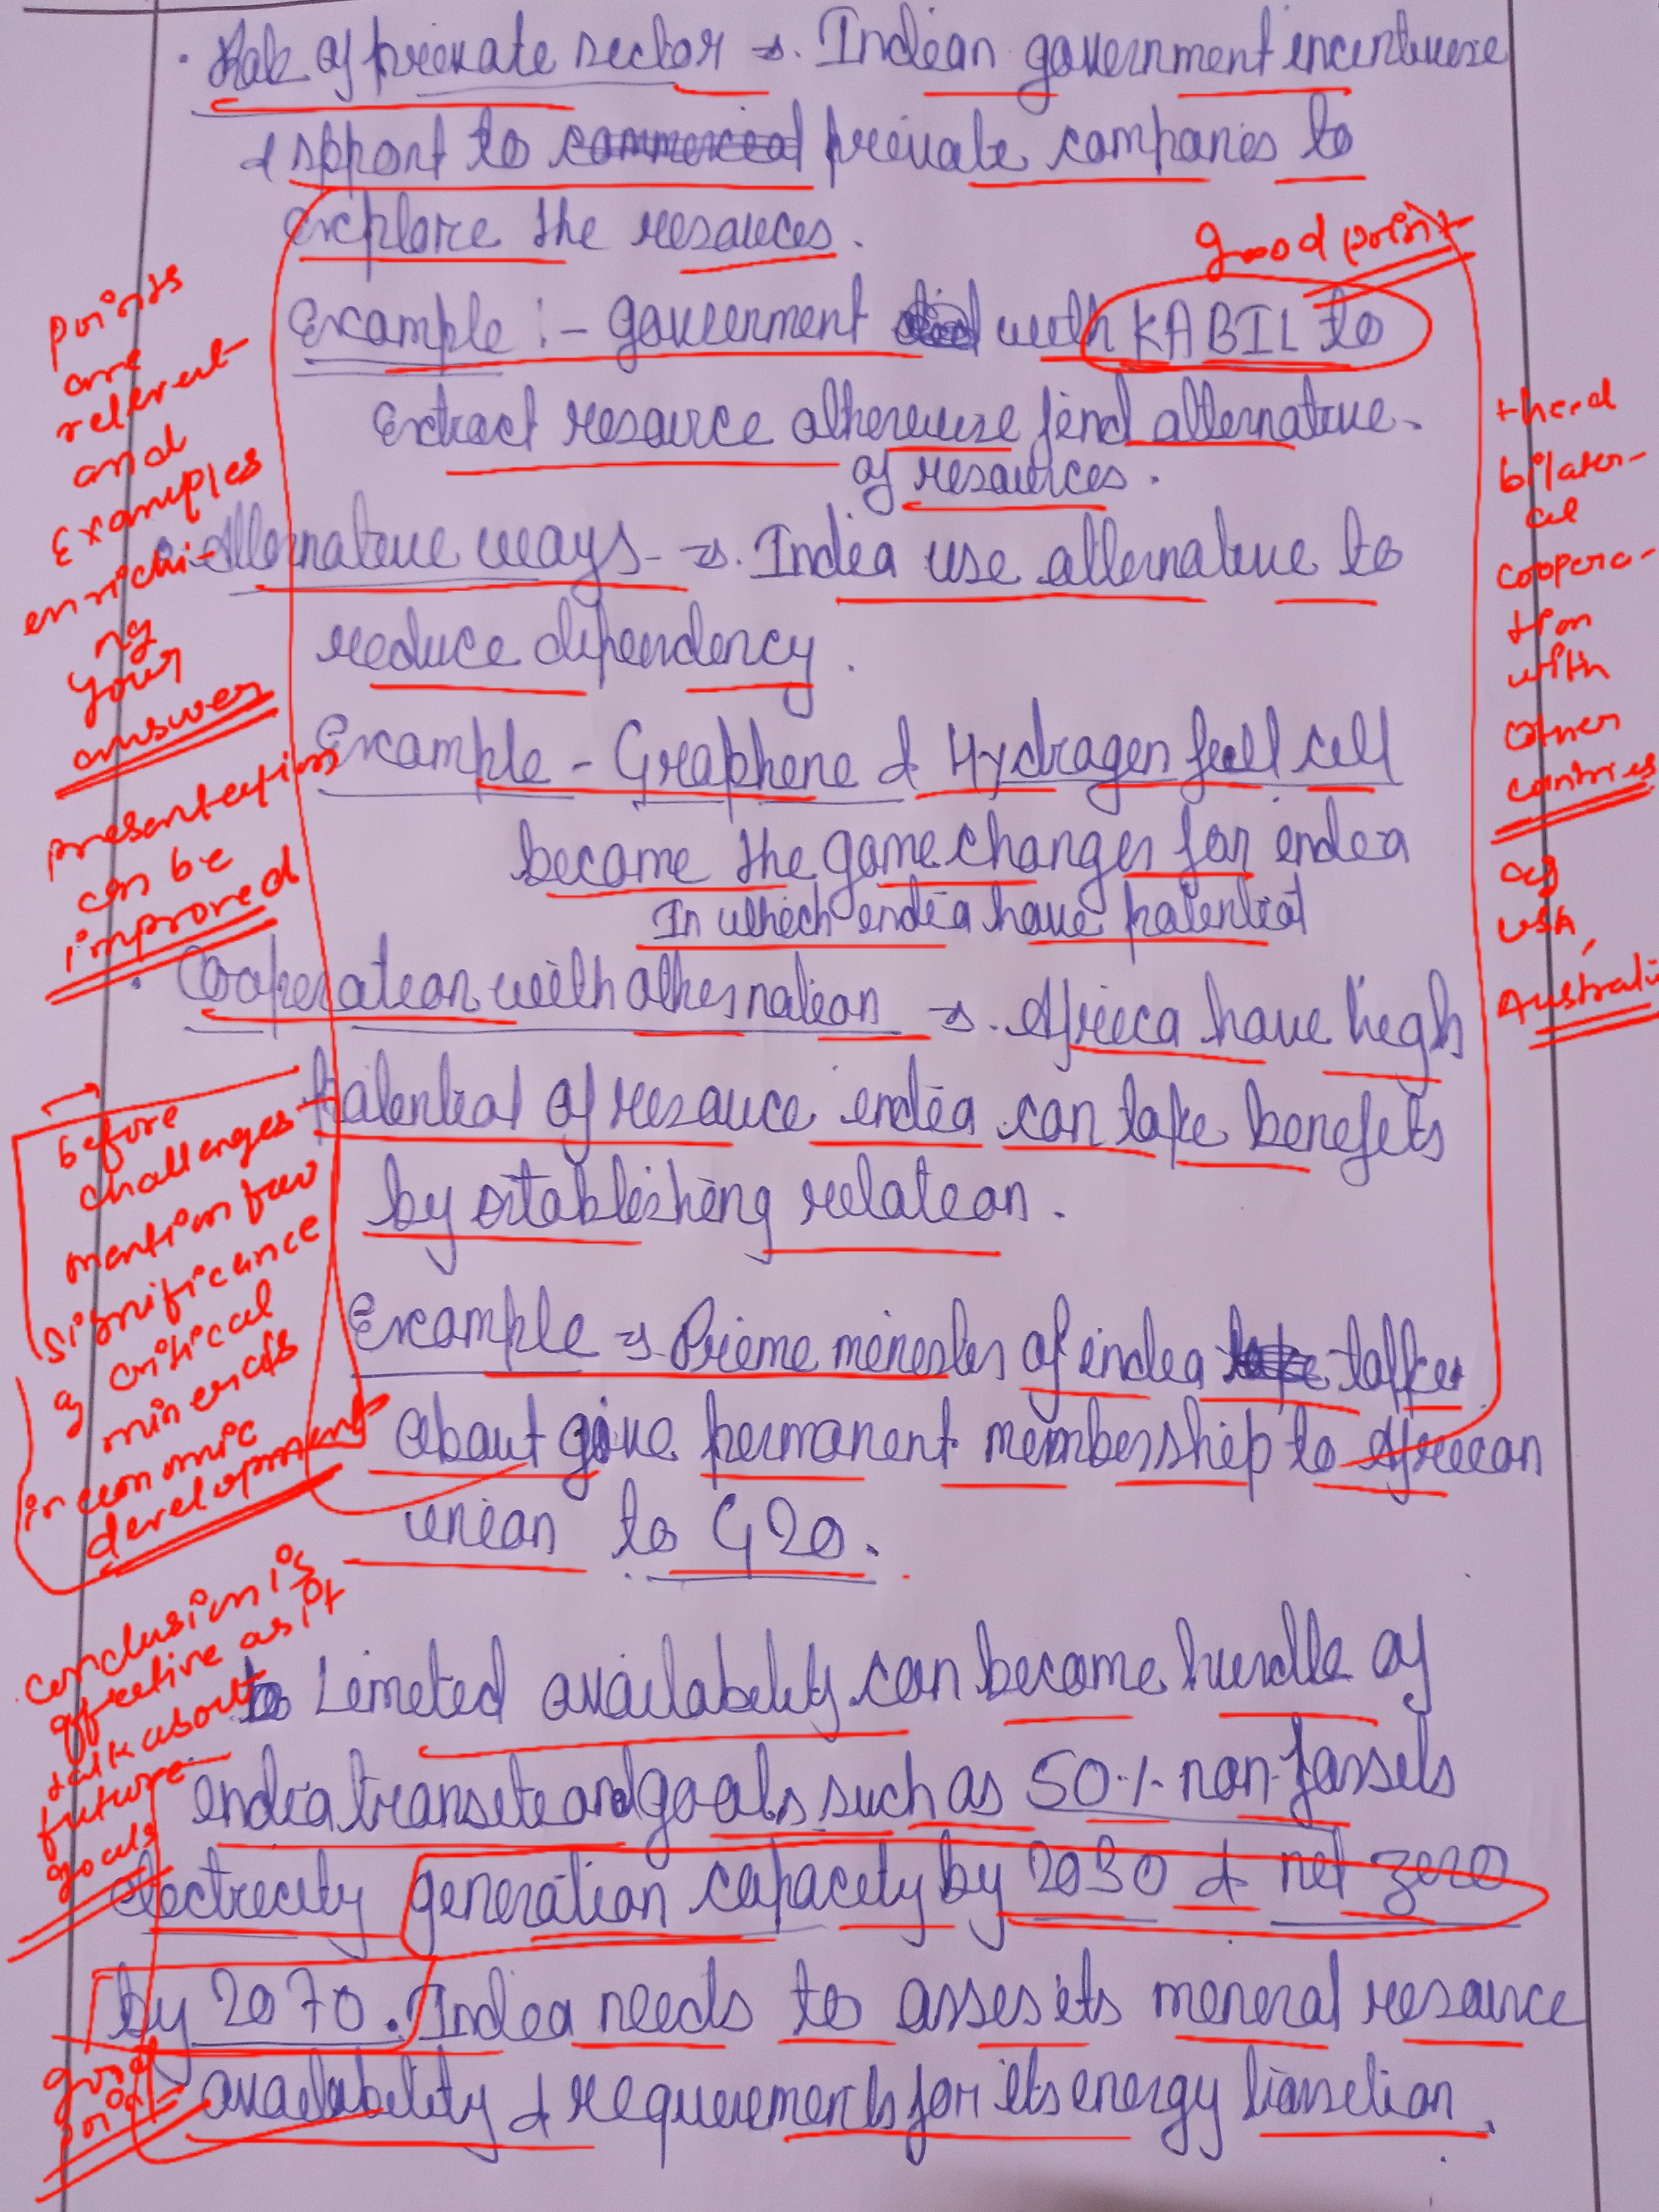 . Role of private sector → Indian government incentivise
& spport to commercial private companies to
explore the resources.
good point
Example :- government did with KABIL to
Extract resource otherwise find alternative
of resources.
points
are
relevent
and
Examples
enrichi-
ng
your
answer
presentation
can be
improved
. Alternative ways → India use alternative to
reduce dependency.
Example - Graphene & Hydrogen fuel cell
become the game changer for india
In which india have potential
thend
bilater-
al
coopera-
tion
with
other
countries
as
USA,
Australia
. Cooperation with other nation → Africa have high
Potential of resource india can take benefits
by establishing relation.
Example → Prime minister of india talks
about give permanent membership to African
union to G20.
before
challenges
mention few
significance
of critical
minerals
in economic
development
conclusion is
effective as it
talk about
future
goals
to Limited availability can become hurdle of
india transition goals such as 50% non-fossils
electricity generation capacity by 2030 & net zero
by 2070. India needs to asses its mineral resource
availability & requirements for its energy transition.
good
point